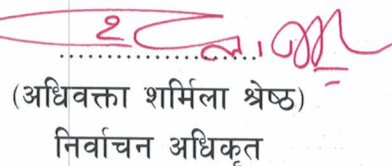 (अधिवक्ता शर्मिला श्रेष्ठ)
निर्वाचन अधिकृत